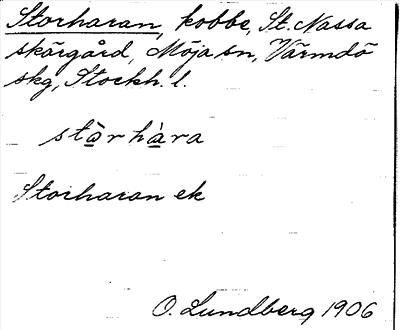 Storharan, kobbe, St. Nassa
skärgård, Möja sn, Värmdö
skg, Stockh. l.
Storharan ek
O. Lundberg 1906